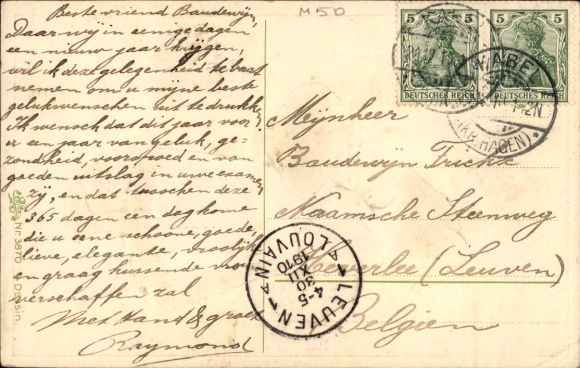 M50
Beste vriend Baudewijn,
Daar wij in eenige dagen
een nieuw jaar krijgen,
wil ik deze gelegenheid te baat
nemen om u mijne beste
gelukwenschen uit te drukken.
Ik wensch dat dit jaar voor
u een jaar van geluk, ge-
zondheid, voorspoed en van
goeden uitslag in uw examen
zij, en dat tusschen deze
365 dagen een dag kome
die u eene schoone, goede,
lieve, elegante, vroolijke
en graag kussende
verschaffen zal
Met Hand & groet
Raymond
Nr. 3870
5 5
DEUTSCHES REICH DEUTSCHES REICH
HABE
(KR. HAGEN)
Mijnheer
Baudewijn
Naamsche Steenweg
Heverlee (Leuven)
Belgien
LOUVAIN
1910
XII
30
4-5
LEUVEN